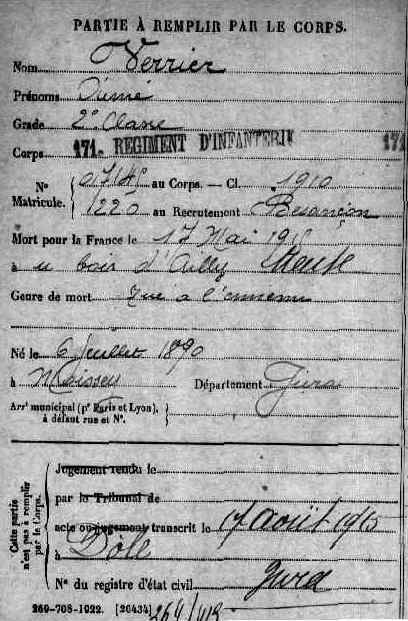 PARTIE À REMPLIR PAR LE CORPS.
Nom Verrier
Prénoms Aimé
Grade 2e Classe
Corps 171e REGIMENT D'INFANTERIE 171
N° Matricule. au Corps. — Cl. 1910
1220 au Recrutement Besançon
Mort pour la France le 17 Mai 1915
à u bois d'Ailly Meuse
Genre de mort Tué à l'ennemi
Né le 6 Juillet 1890
à Moissey Département Jura
Arrt municipal (pr Paris et Lyon),
à défaut rue et N°.
Cette partie n'est pas à remplir par le Corps.
Jugement rendu le
par le Tribunal de
acte ou jugement transcrit le 17 Août 1915
à Dôle
N° du registre d'état civil Jura
269-708-1922. [26434] 264/413